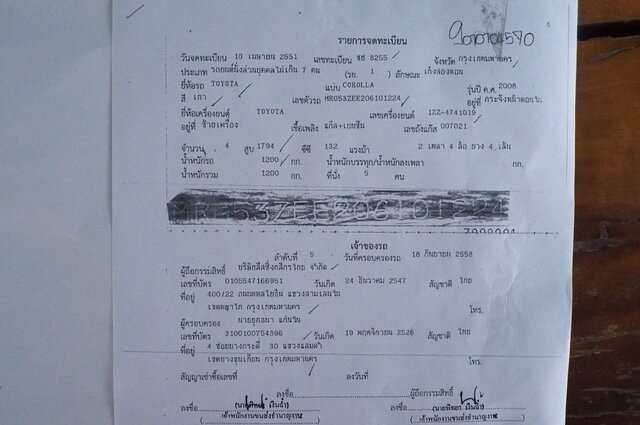 6
รายการจดทะเบียน
วันจดทะเบียน 10 เมษายน 2551 เลขทะเบียน 8255 จังหวัด กรุงเทพมหานคร
ประเภท รถยนต์นั่งส่วนบุคคลไม่เกิน 7 คน (รย. 1) ลักษณะ เก๋งสองตอน
ยี่ห้อรถ TOYOTA แบบ COROLLA รุ่นปี ค.ศ. 2008
สี เทา เลขตัวรถ MR053ZEE206101224 อยู่ที่
ยี่ห้อเครื่องยนต์ TOYOTA เลขเครื่องยนต์ 1ZZ-4741019
อยู่ที่ ซ้ายเครื่อง เชื้อเพลิง เลขถังแก๊ส 007021
จำนวน 4 สูบ 1794 ซีซี 132 แรงม้า 2 เพลา 4 ล้อ ยาง 4 เส้น
น้ำหนักรถ 1200 กก. น้ำหนักบรรทุก/น้ำหนักลงเพลา กก.
น้ำหนักรวม 1200 กก. ที่นั่ง 5 คน
MR053ZEE206101224
เจ้าของรถ
ลำดับที่ 5 วันที่ครอบครองรถ 18 กันยายน 2558
ผู้ถือกรรมสิทธิ์ บริษัทลีสซิ่งกสิกรไทย จำกัด
เลขที่บัตร 0105547166951 วันเกิด 24 ธันวาคม 2547 สัญชาติ ไทย
ที่อยู่ 400/22 ถนนพหลโยธิน แขวงสามเสนใน
เขตพญาไท กรุงเทพมหานคร โทร.
ผู้ครอบครอง
เลขที่บัตร 3100100754396 วันเกิด 19 พฤศจิกายน 2526 สัญชาติ ไทย
ที่อยู่ 4 30 แขวงแสมดำ
เขตบางขุนเทียน กรุงเทพมหานคร โทร.
สัญญาเช่าซื้อเลขที่ ลงวันที่
ลงชื่อ ผู้ถือกรรมสิทธิ์
ลงชื่อ ลงชื่อ
เจ้าพนักงานขนส่งชำนาญงาน เจ้าพนักงานขนส่งชำนาญงาน